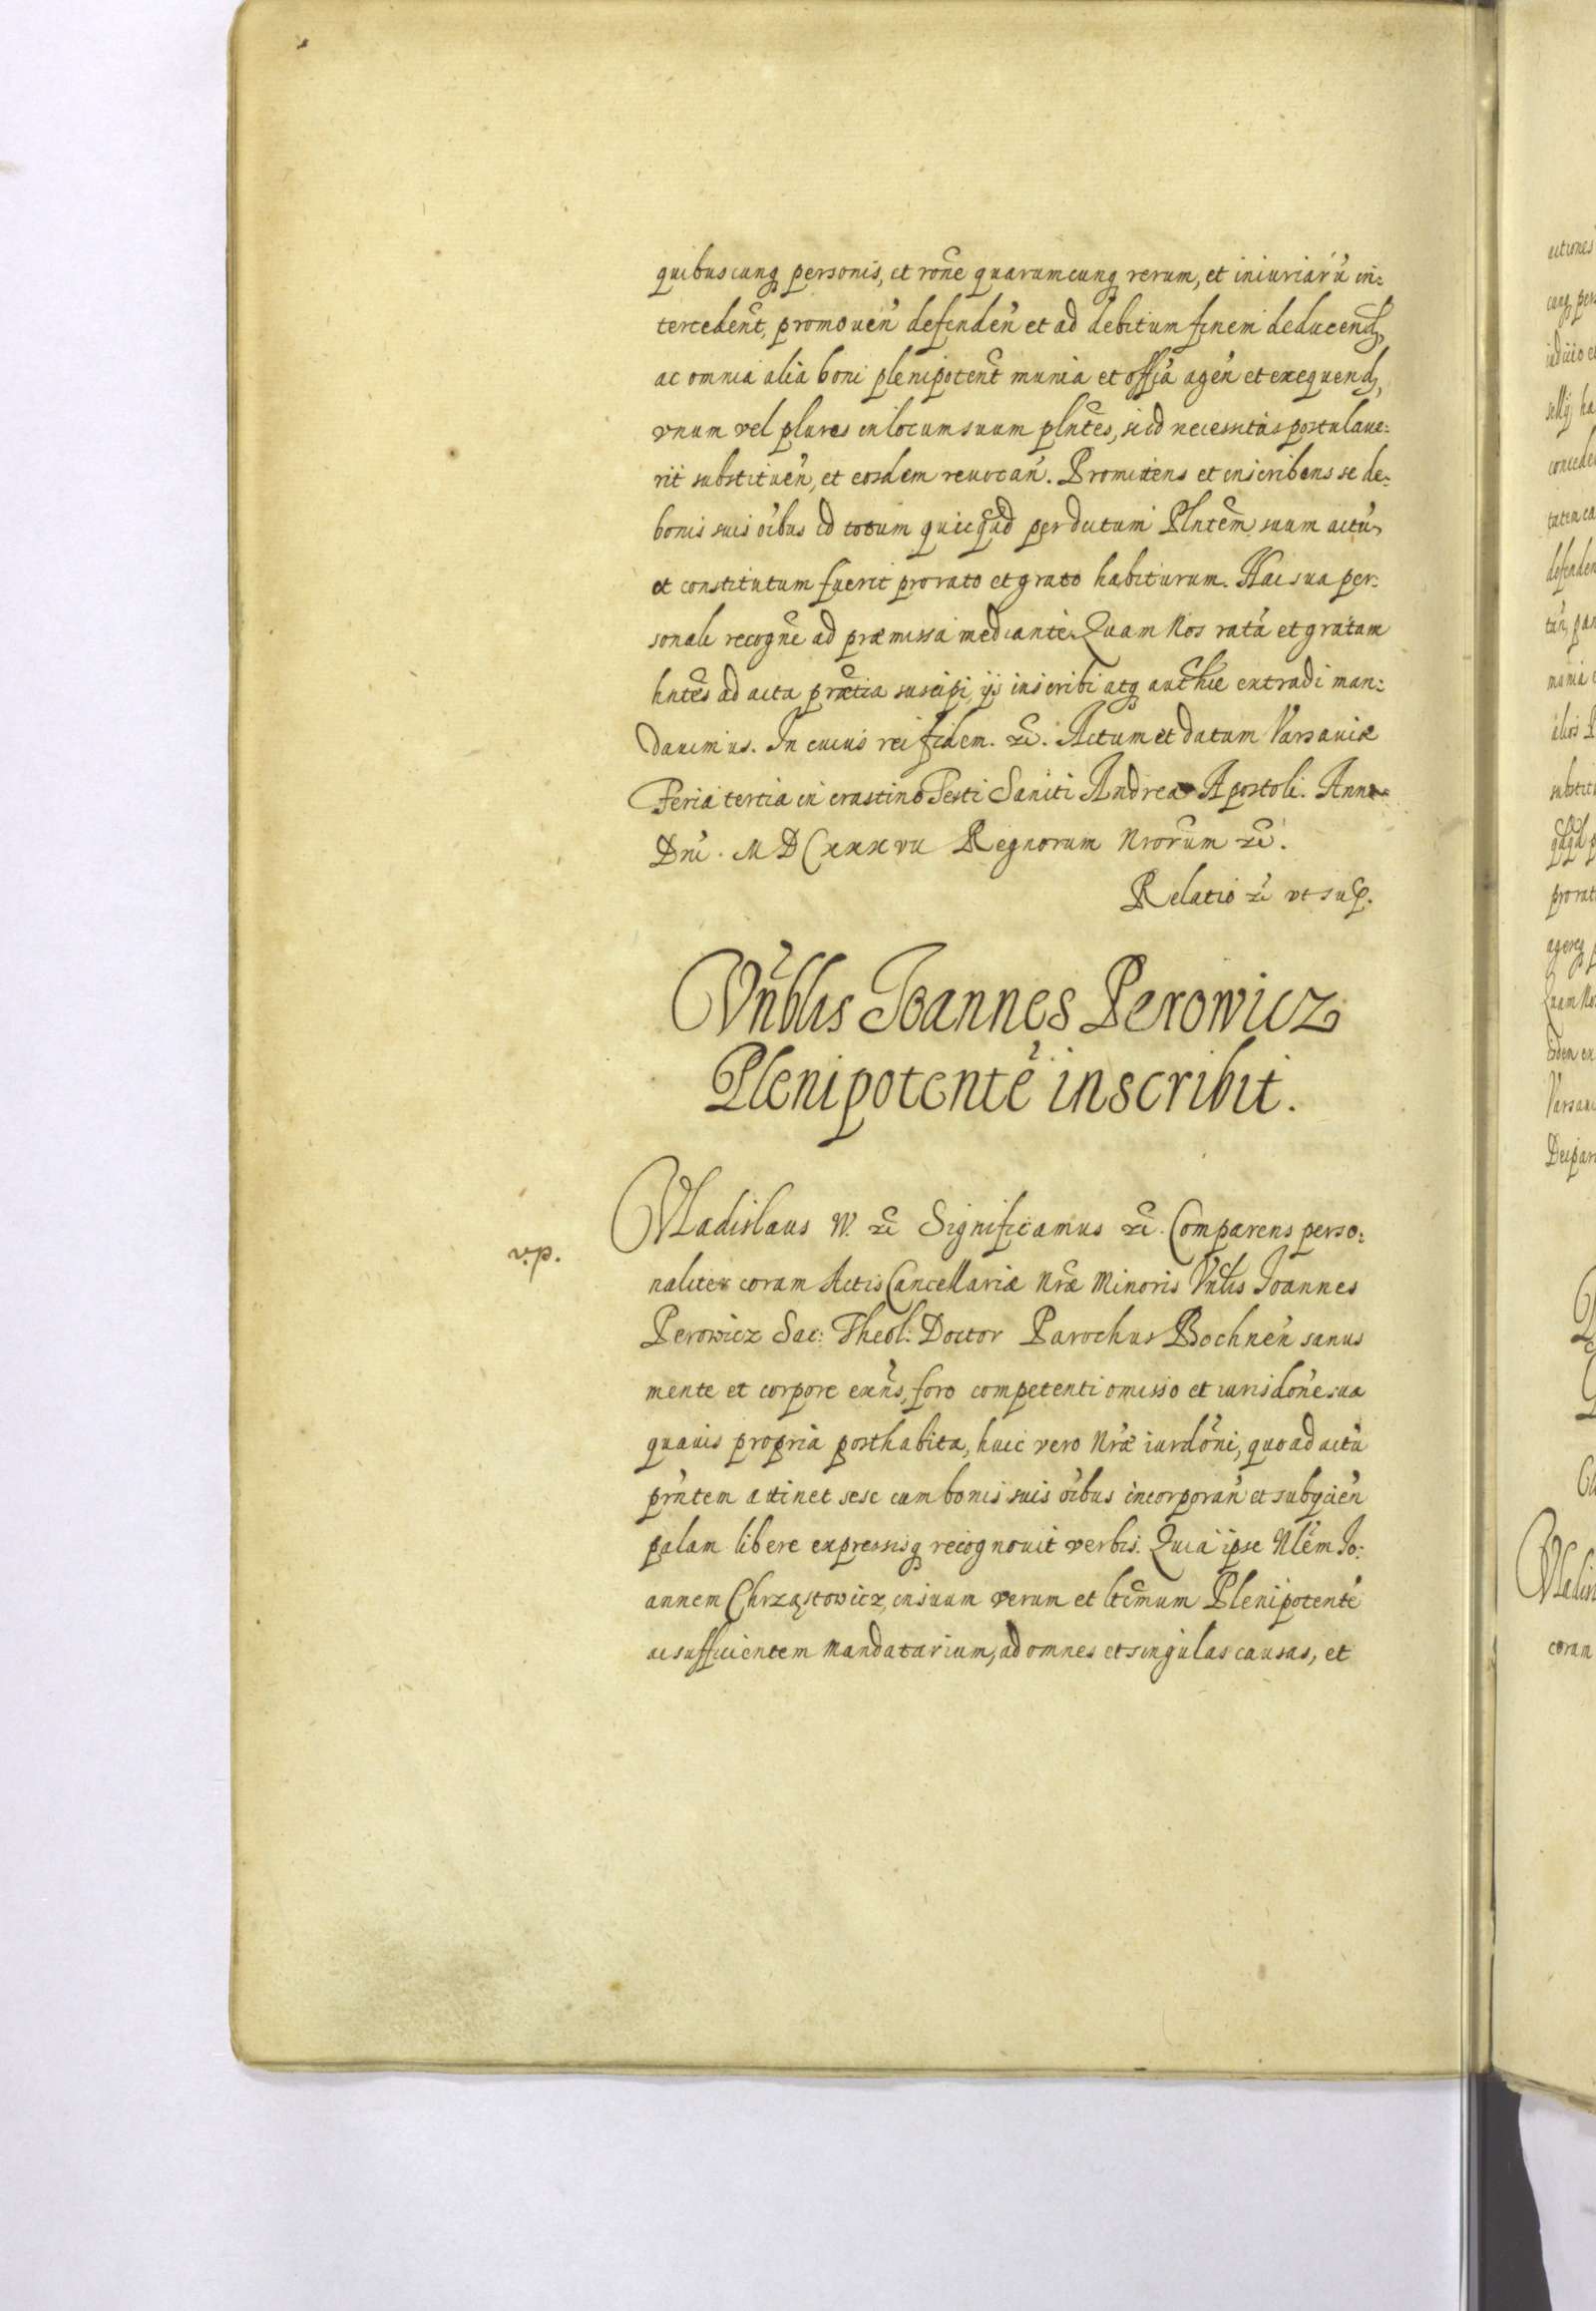 quibuscunq personis, et rone quarumcunq rerum, et iniuriarũ in:
tercedent, promouen defenden et ad debitum finem deducend,
ac omnia alia boni plenipotent munia et offia agen et exequend,
vnum vel plures in locum suum plntes, si id necessitas postulaue:
rit substituen, et eosdem reuocan. Promittens et inscribens se de
bonis suis oibus id totum quicquid per dictum Plntem suum actũ
et constitutum fuerit pro rato et grato habiturum. Hac sua per:
sonali recogne ad præmissa mediante. Quam Nos ratã et gratam
hntes ad acta prætia suscipi, ijs inscribi atq authce extradi man:
dauimus. In cuius rei fidem. etc. Actum et datum Varsauiæ
Feria tertia in crastino Festi Sancti Andreæ Apostoli. Anno
Dni. MDCxxxvii Regnorum Nrorum etc.
Relatio etc vt sup.
Vnblis Joannes Perowicz
Plenipotentẽ inscribit.
Vladislaus IV. etc Significamus etc. Comparens perso:
v.p.
naliter coram Actis Cancellariæ Nræ Minoris Vnlis Joannes
Perowicz Sac: Theol: Doctor Parochus Bochnen sanus
mente et corpore exns, foro competenti omisso et iurisdone sua
quauis propria posthabita, huic vero Nræ iurdoni, quoad actũ
prntem attinet sese cum bonis suis oibus incorporan et subycien
palam libere expressisq recognouit verbis. Quia ipse Nlem Jo:
annem Chrząstowicz, in suum verum et ltimum Plenipotentẽ
ac sufficientem Mandatarium, ad omnes et singulas causas, et